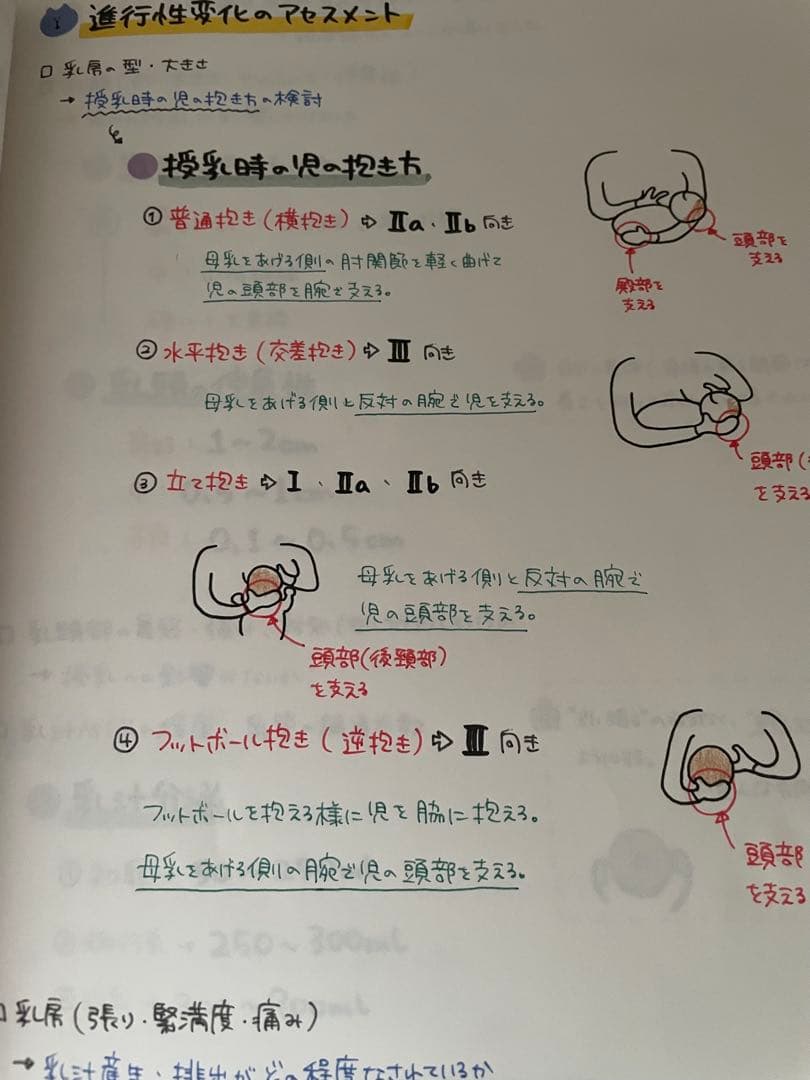 進行性変化のアセスメント
□ 乳房の型・大きさ
→ 授乳時の児の抱き方の検討
授乳時の児の抱き方
① 普通抱き(横抱き) ⇨ Ⅱa・Ⅱb 向き
母乳をあげる側の肘関節を軽く曲げて
児の頭部を腕で支える。
頭部を
支える
殿部を
支える
② 水平抱き(交差抱き) ⇨ Ⅲ 向き
母乳をあげる側と反対の腕で児を支える。
頭部(
を支える
③ 立て抱き ⇨ Ⅰ、Ⅱa、Ⅱb 向き
母乳をあげる側と反対の腕で
児の頭部を支える。
頭部(後頸部)
を支える
④ フットボール抱き(逆抱き) ⇨ Ⅲ 向き
フットボールを抱える様に児を脇に抱える。
母乳をあげる側の腕で児の頭部を支える。
頭部
を支える
□ 乳房(張り・緊満度・痛み)
→ 乳汁産生・排出がどの程度なされているか